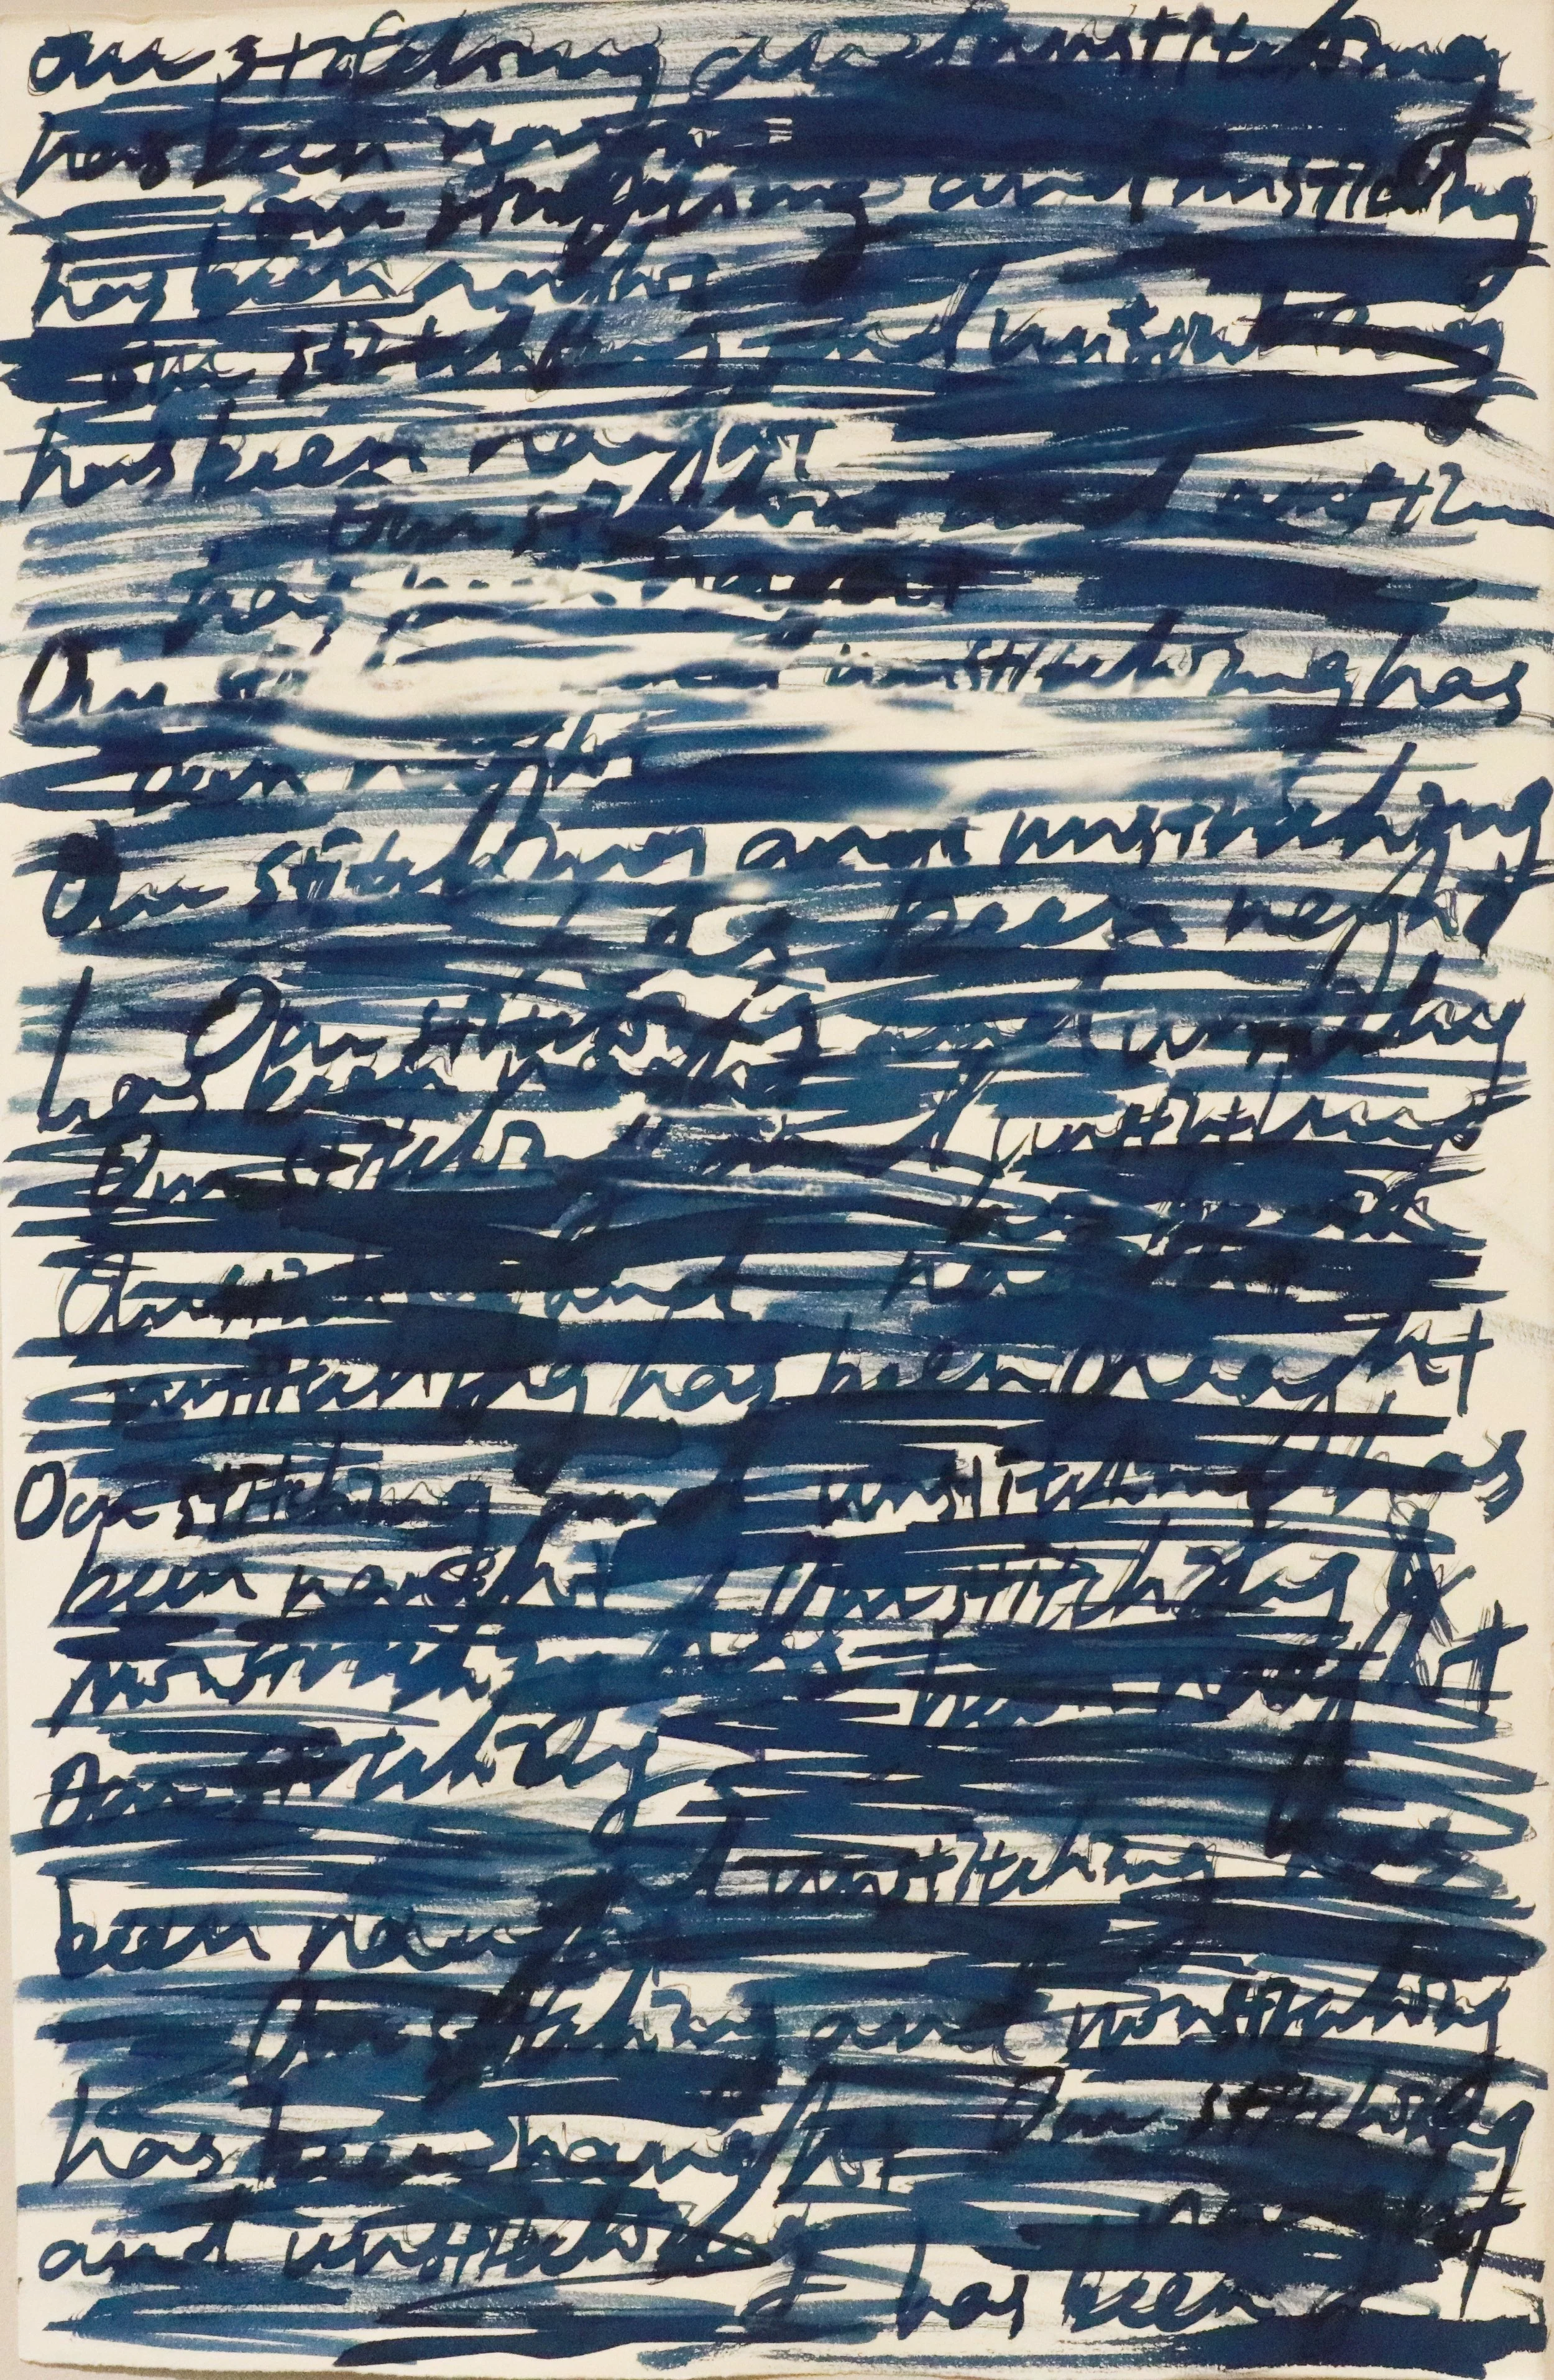 Our stitching and unstitching
has been naught
Our stitching and unstitching
has been naught
Our stitching and unstitching
has been naught
Our and
has naught
Our unstitching has
been naught
Our stitching and unstitching
has been naught
Our stitching and unstitching
has been naught
Our stitching and unstitching
has been
Our and
unstitching has been naught
Our stitching and unstitching has
been naught Our stitching
unstitching has been naught
Our stitching
unstitching has
been naught
Our stitching and unstitching
has been naught Our stitching
and unstitching has been naught